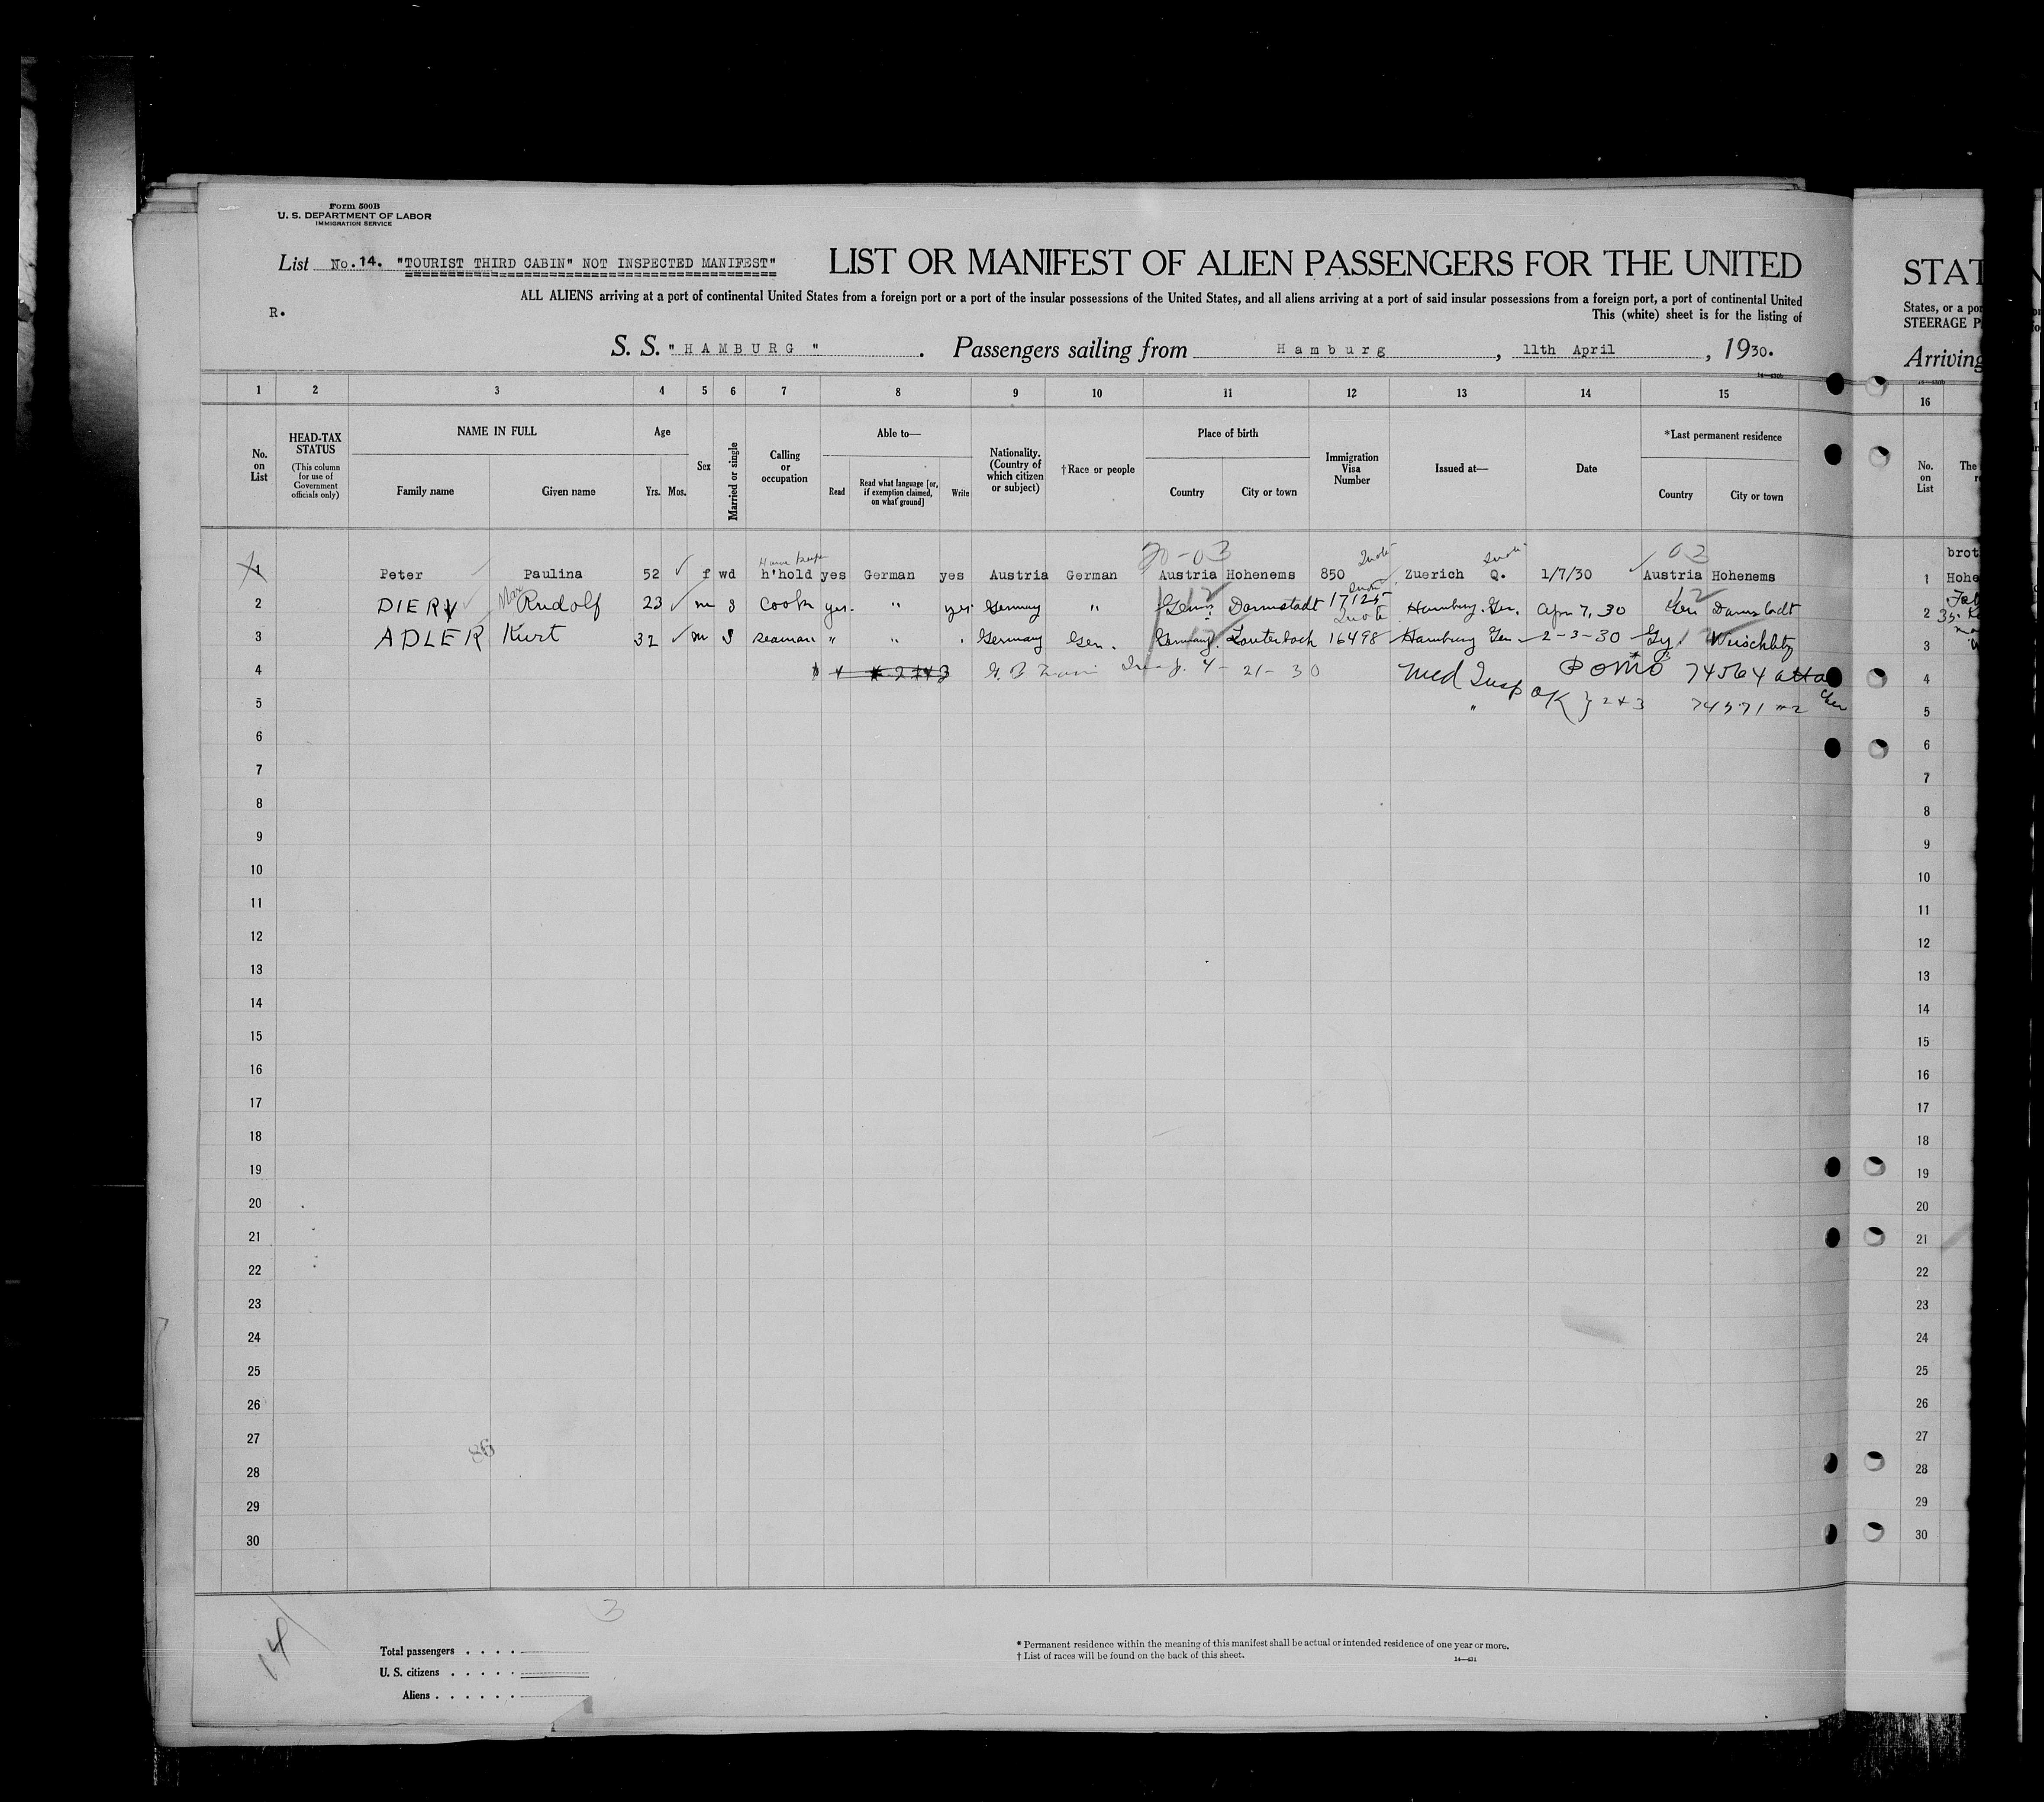 Form 500B
U. S. DEPARTMENT OF LABOR
IMMIGRATION SERVICE
List No. 14. "TOURIST THIRD CABIN" NOT INSPECTED MANIFEST"
LIST OR MANIFEST OF ALIEN PASSENGERS FOR THE UNITED
ALL ALIENS arriving at a port of continental United States from a foreign port or a port of the insular possessions of the United States, and all aliens arriving at a port of said insular possessions from a foreign port, a port of continental United
R.
This (white) sheet is for the listing of
S. S. " HAMBURG ". Passengers sailing from Hamburg, 11th April, 1930.
1 2 3 4 5 6 7 8 9 10 11 12 13 14 15
No. on List
HEAD-TAX STATUS
(This column for use of Government officials only)
NAME IN FULL
Family name
Given name
Age
Yrs. Mos.
Sex
Married or single
Calling or occupation
Able to—
Read
Read what language [or, if exemption claimed, on what ground]
Write
Nationality. (Country of which citizen or subject)
†Race or people
Place of birth
Country
City or town
Immigration Visa Number
Issued at—
Date
*Last permanent residence
Country
City or town
20-03
03
1 Peter Paulina 52 f wd h'hold yes German yes Austria German Austria Hohenems 850 Zuerich Q. 1/7/30 Austria Hohenems
2 DIERY Max Rudolf 23 m s Cook yes. " yes Germany " Germ. Darmstadt 17125 Hamburg. Ger. Apr 7, 30 Ger Darmstadt
3 ADLER Kurt 32 m S seaman " " " Germany Ger. Germany. Lauterbach 16498 Hamburg Ger 2-3-30 Gy.
4 4-21-30 Med Insp OK 74564
5 " } 2+3 74571
6
7
8
9
10
11
12
13
14
15
16
17
18
19
20
21
22
23
24
25
26
27
28
29
30
86
14
3
Total passengers
U. S. citizens
Aliens
* Permanent residence within the meaning of this manifest shall be actual or intended residence of one year or more.
† List of races will be found on the back of this sheet.
14—431
STAT
States, or a por
STEERAGE P
Arriving
16
No. on List
The
brot
1 Hohe
2
3
4
5
6
7
8
9
10
11
12
13
14
15
16
17
18
19
20
21
22
23
24
25
26
27
28
29
30